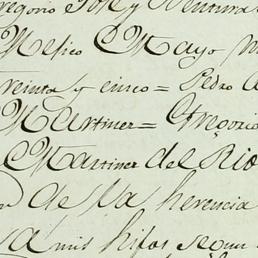 Mexico Mayo
reinta y cinco = Pedro
Martinez = Gregorio
Martinez del Rio
de la herencia
a mis hijos segun